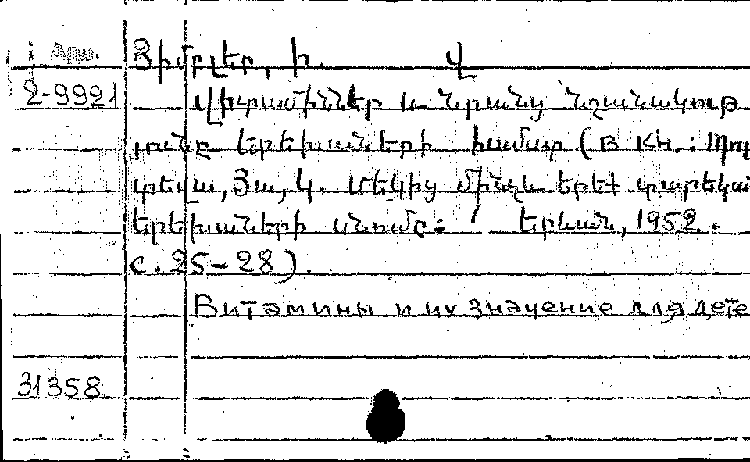 Арм. Ցիմբլեր, Ի. Վ
2-9921 Վիտամիններ և նրանց նշանակութ
յունը երեխաների համար (В кн.: Պոր
տեվա, Յա, Կ. Մեկից մինչև երեք տարեկա
երեխաների սնումը: Երևան, 1952.
с. 25-28).
Витамины и их значение для дете
31358